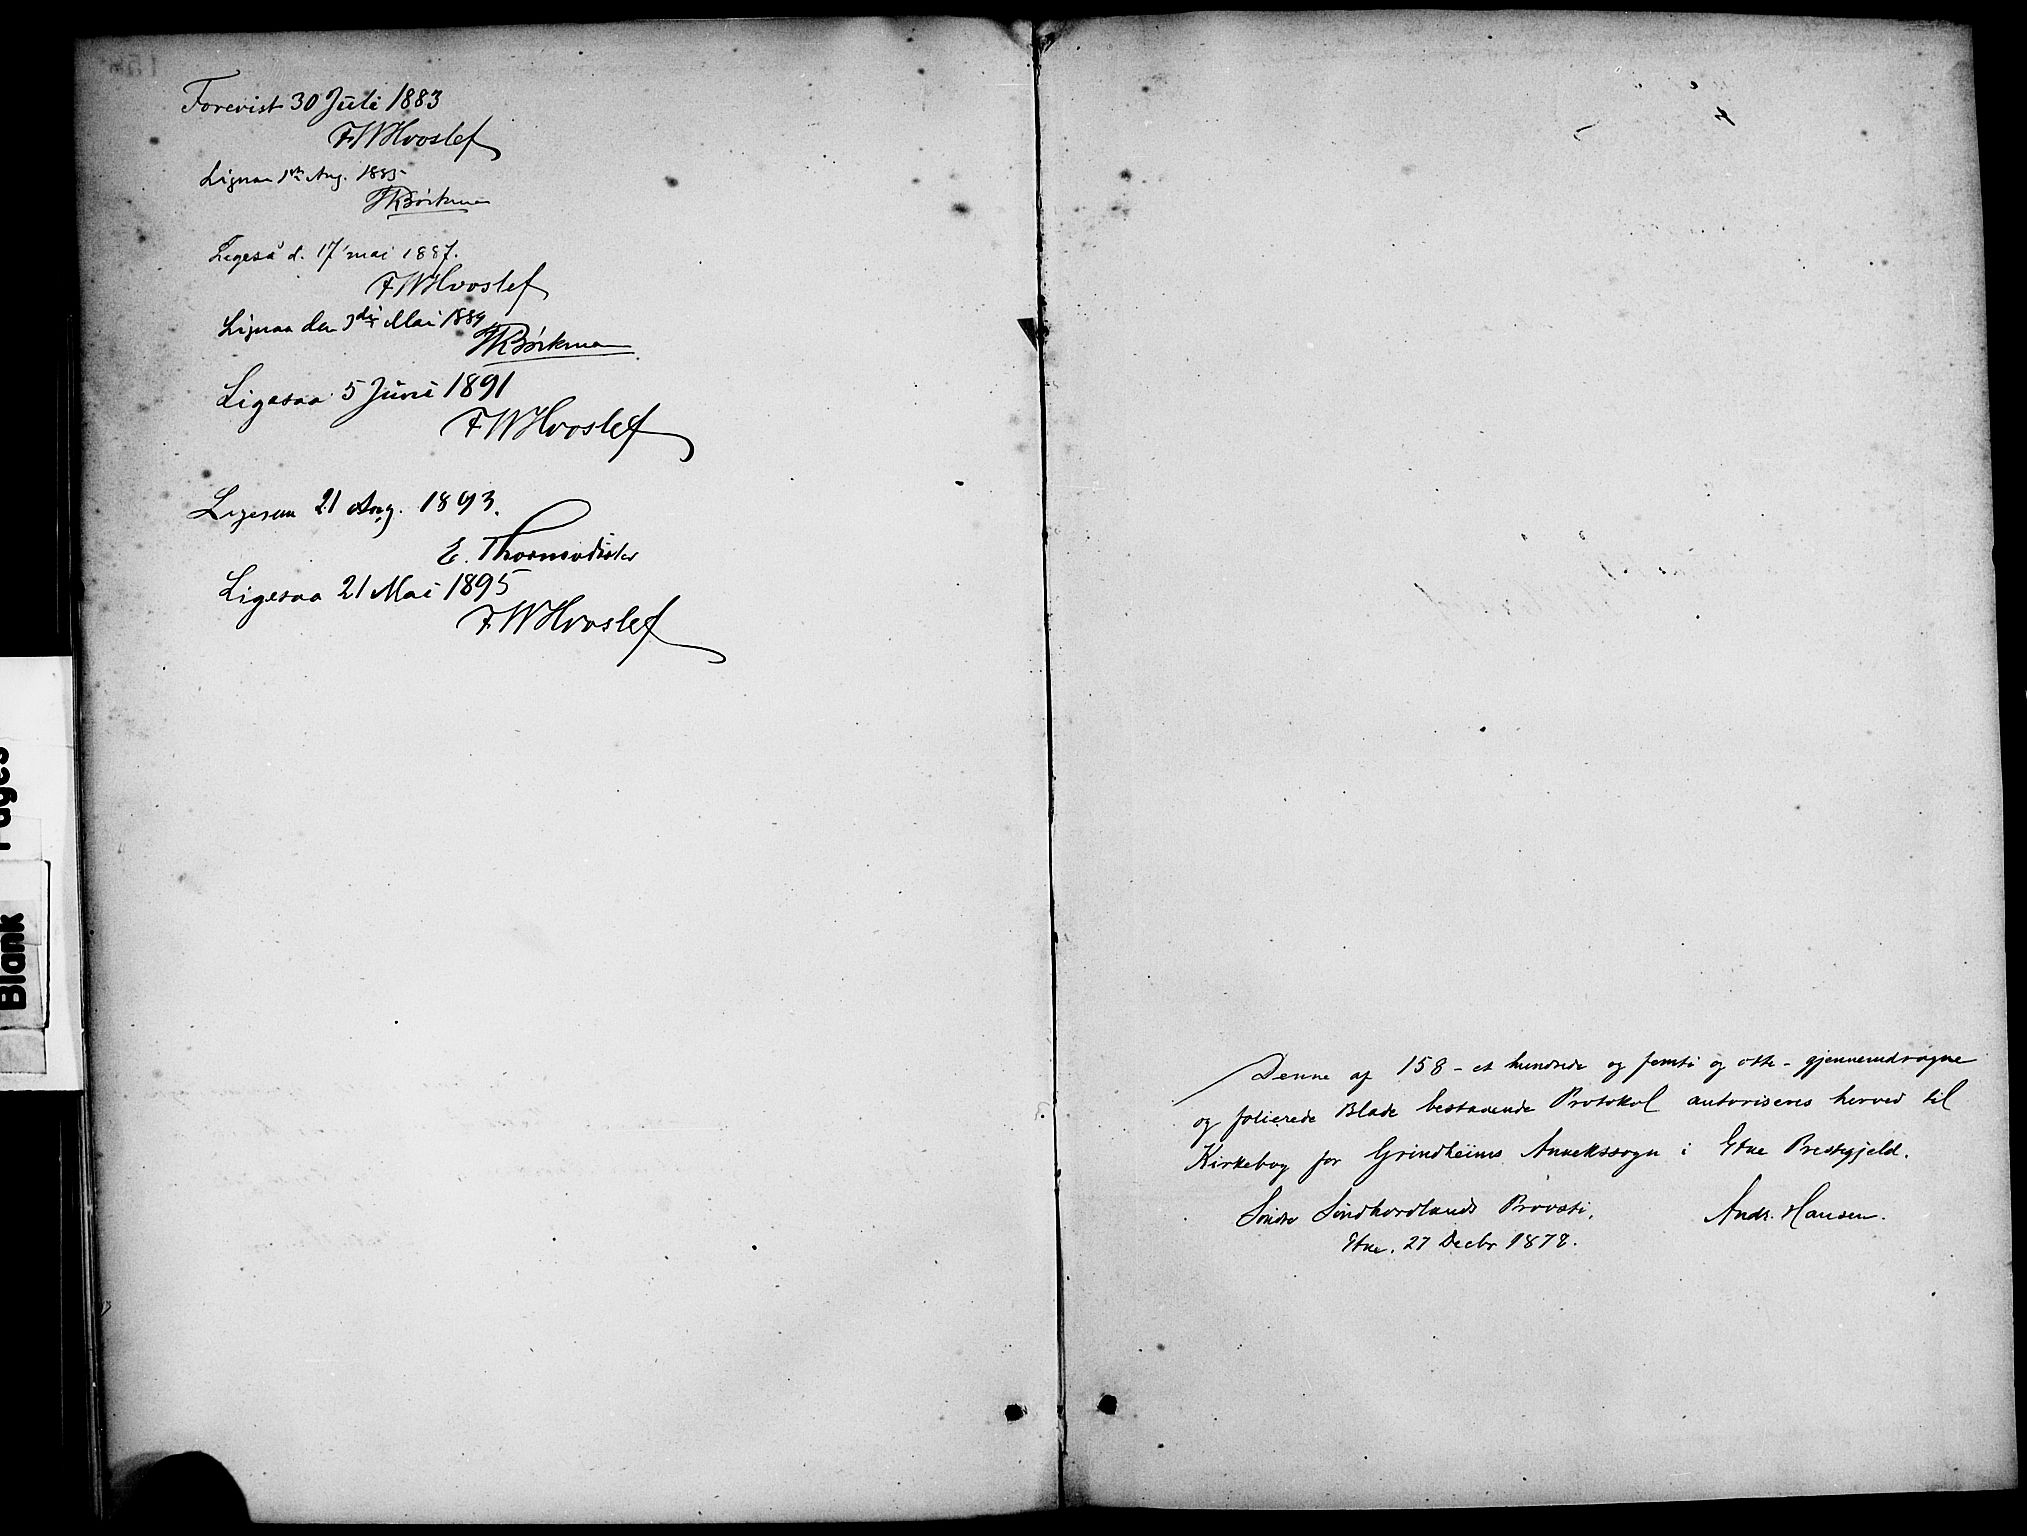 Forevist 30 Juli 1883
FWHvoslef
Ligesaa 1ste Aug. 1885
Ligeså d. 17 mai 1887.
FWHvoslef
Ligesaa den 3die Mai 1889
Ligesaa 5 Juni 1891
FWHvoslef
Ligesaa 21 Aug. 1893.
Ligesaa 21 Mai 1895
FWHvoslef
Denne af 158 - et hundrede og femti og otte - gjennemdragne
og folierede Blade bestaaende Protokol autoriseres herved til
Kirkebog for Grindheims Annekssogn i Etne Prestegjeld.
Søndre Søndhordlands Provsti,
Andr. Hansen.
Etne. 27 Decbr 1878.
Blank Pages